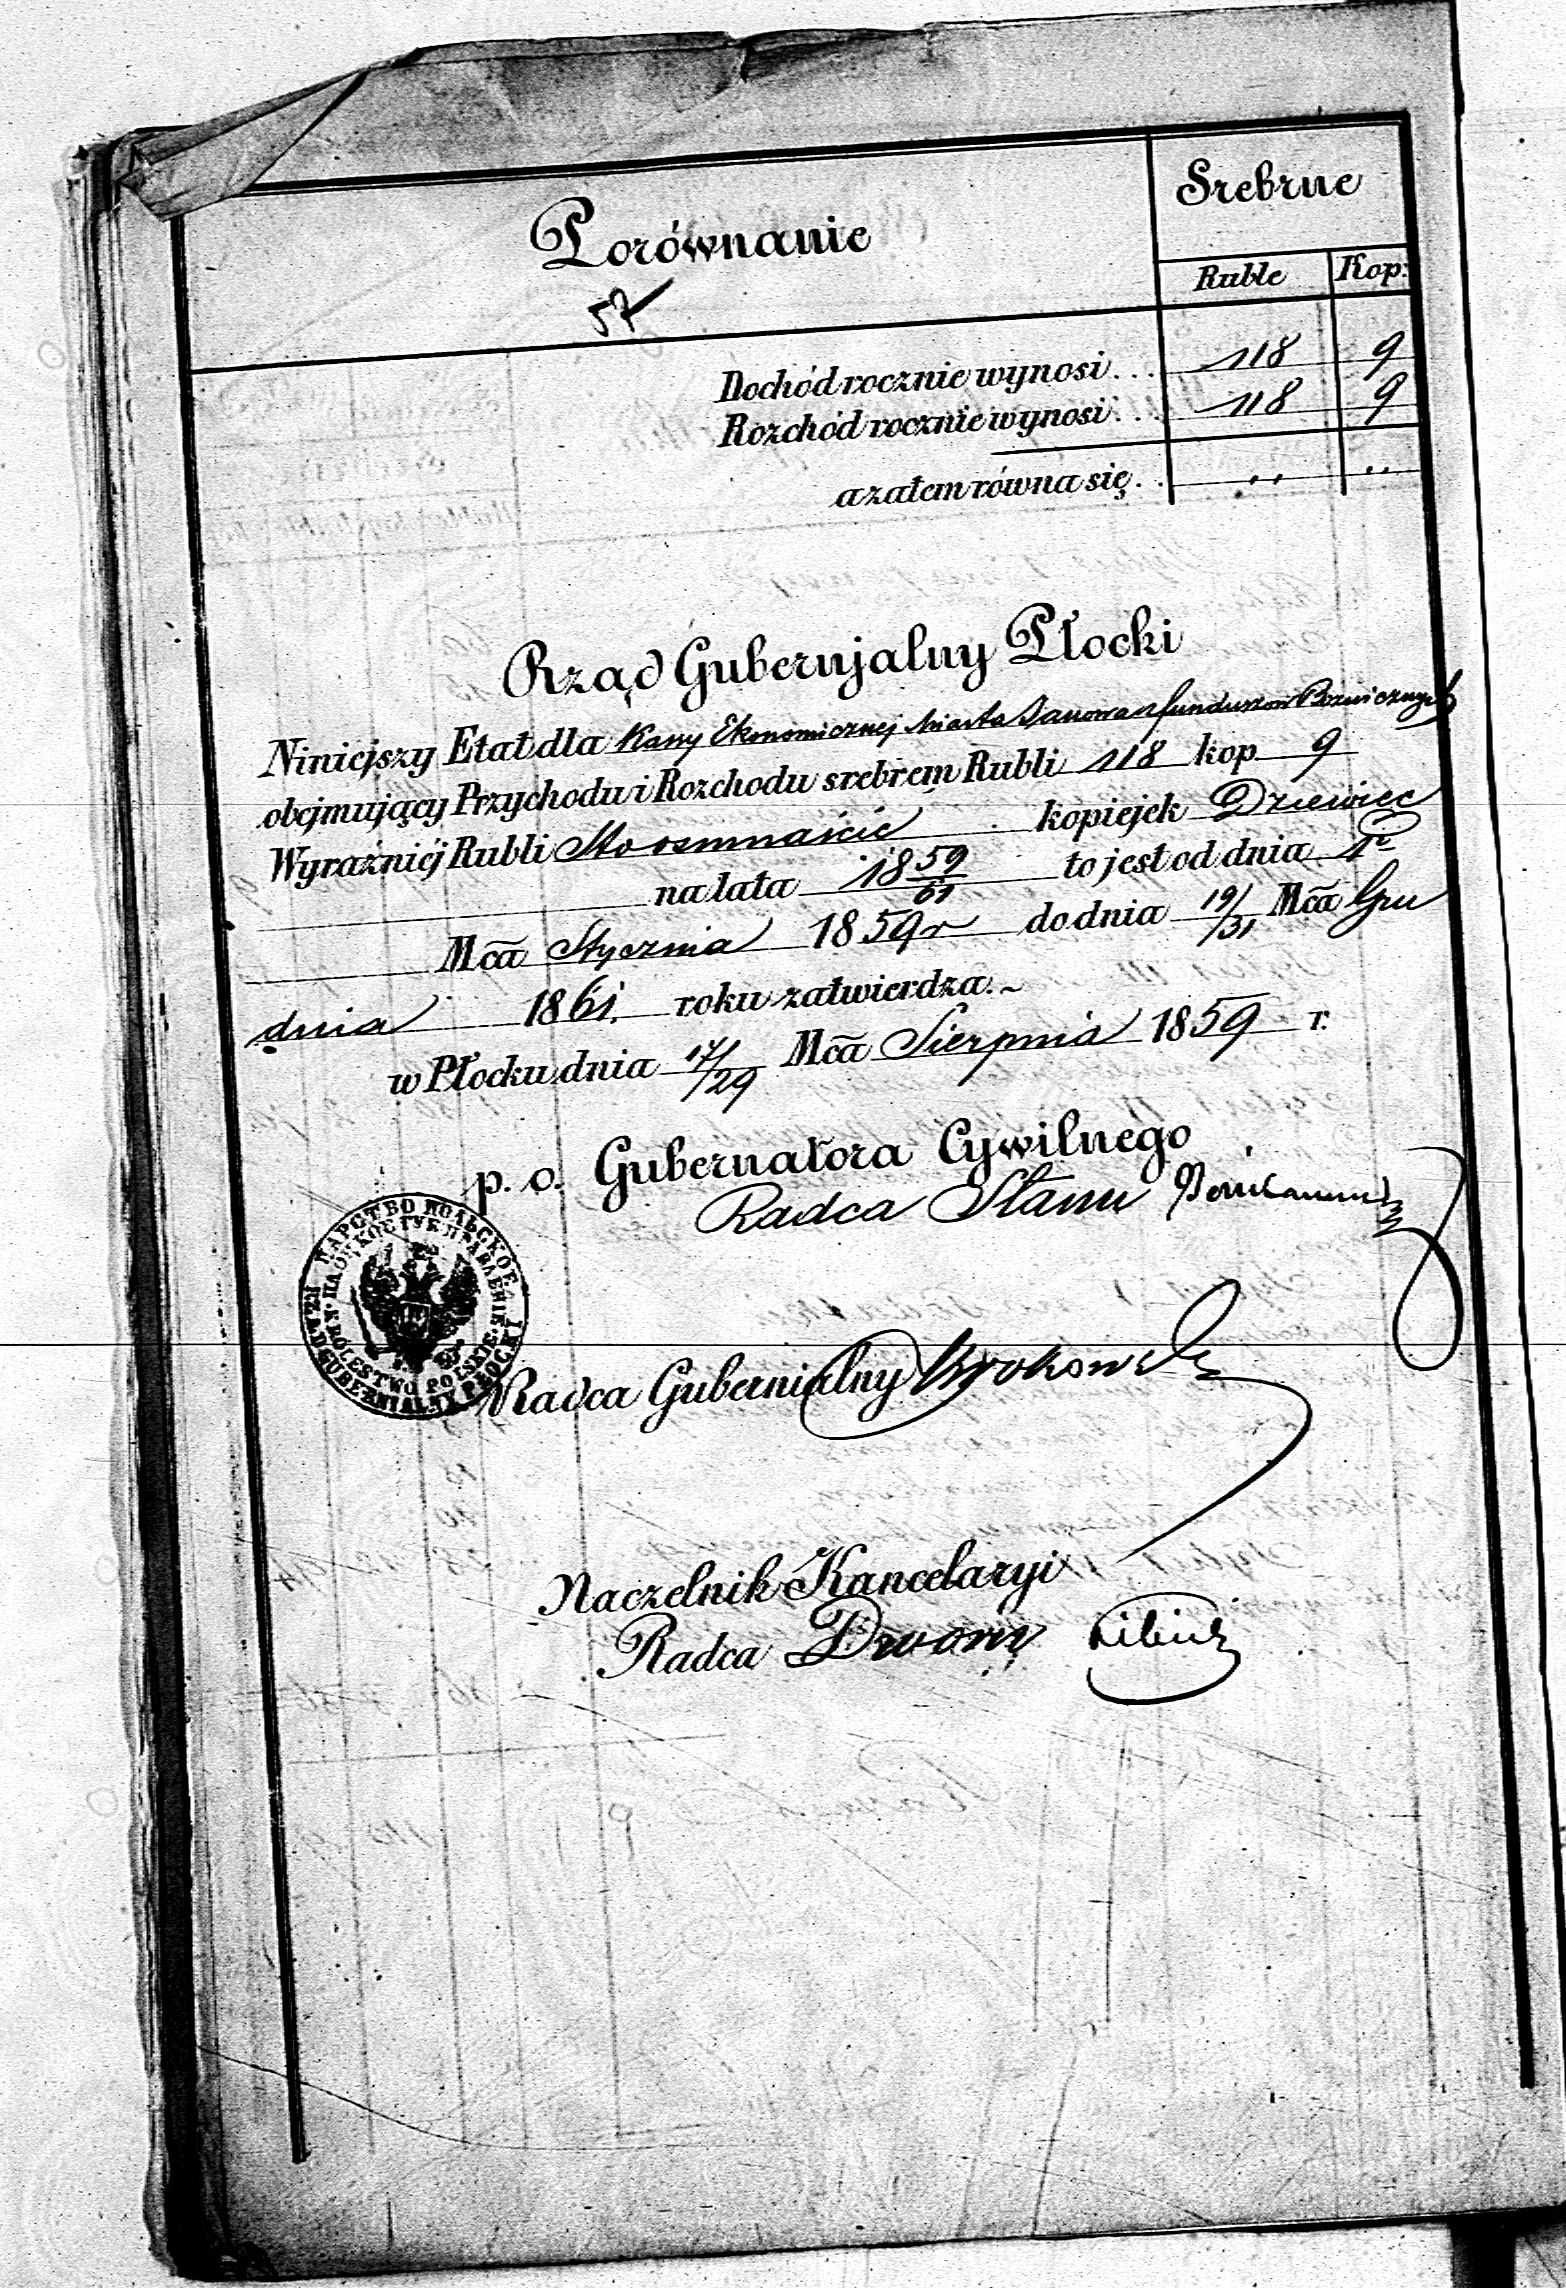 Porównanie
Srebrne
Ruble Kop:
57
Dochód rocznie wynosi... 118 9
Rozchód rocznie wynosi... 118 9
a zatem równa się.. ,, ,,
Rząd Gubernjalny Płocki
Niniejszy Etat dla Kassy Ekonomicznej Miasta Janowa z funduszów Bożnicznych
obejmujący Przychodu i Rozchodu srebrem Rubli 118 kop 9
Wyraźniéj Rubli Sto osmnaście kopiejek Dziewięć
na lata 1859/61 to jest od dnia 1o
Mca Stycznia 1859 r do dnia 19/31 Mca Gru
dnia 1861. roku zatwierdza.~
w Płocku dnia 17/29 Mca Sierpnia 1859 r.
p. o. Gubernatora Cywilnego
Radca Stanu
ЦАРСТВО ПОЛЬСКОЕ
ПЛОЦКОЕ ГУБ. ПРАВЛЕНІЕ
KRÓLESTWO POLSKIE
RZĄD GUBERNIALNY PŁOCKI
Radca Gubernialny
Naczelnik Kancelaryi
Radca Dworu